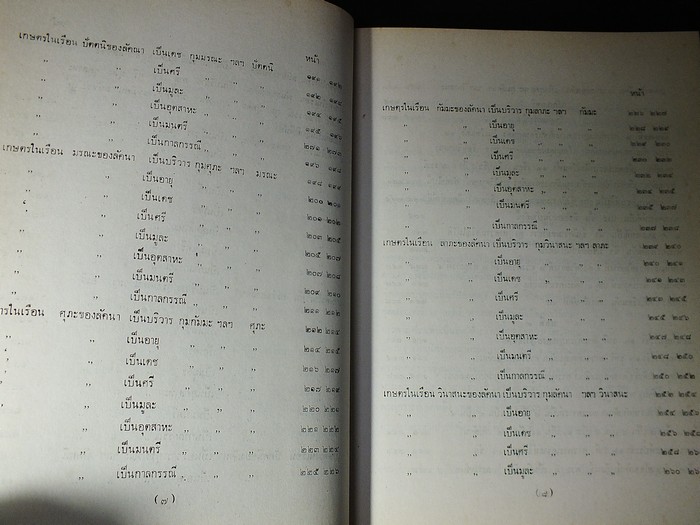 เกษตรในเรือน ปัตตนิของลัคนา เป็นเดช กุมมรณะ ฯลฯ ปัตตนิ
หน้า
" " เป็นศรี " " " ๑๙๑ ๑๙๒
" " เป็นมูละ " " " ๑๙๒ ๑๙๔
" " เป็นอุตสาหะ " " " ๑๙๔ ๑๙๕
" " เป็นมนตรี " " " ๑๙๕ ๑๙๖
" " เป็นกาลกรรณี " " "
เกษตรในเรือน มรณะของลัคนา เป็นบริวาร กุมศุภะ ฯลฯ มรณะ ๑๙๖ ๑๙๘
" " เป็นอายุ " " " ๑๙๘ ๑๙๙
" " เป็นเดช " " " ๒๐๐ ๒๐๑
" " เป็นศรี " " " ๒๐๑ ๒๐๒
" " เป็นมูละ " " " ๒๐๓ ๒๐๕
" " เป็นอุตสาหะ " " " ๒๐๕ ๒๐๗
" " เป็นมนตรี " " " ๒๐๗ ๒๐๘
" " เป็นกาลกรรณี " " " ๒๐๙ ๒๑๐
รในเรือน ศุภะของลัคนา เป็นบริวาร กุมกัมมะ ฯลฯ ศุภะ ๒๑๑ ๒๑๒
" " เป็นอายุ " " " ๒๑๒ ๒๑๔
" " เป็นเดช " " " ๒๑๔ ๒๑๕
" " เป็นศรี " " " ๒๑๖ ๒๑๗
" " เป็นมูละ " " " ๒๑๗ ๒๑๙
" " เป็นอุตสาหะ " " " ๒๒๐ ๒๒๑
" " เป็นมนตรี " " " ๒๒๑ ๒๒๒
" เป็นกาลกรรณี " " " ๒๒๓ ๒๒๔
๒๒๕ ๒๒๖
(๗)
หน้า
เกษตรในเรือน กัมมะของลัคนา เป็นบริวาร กุมลาภะ ฯลฯ กัมมะ ๒๒๖ ๒๒๗
" " เป็นอายุ " " " ๒๒๘ ๒๒๙
" " เป็นเดช " " "
" " เป็นศรี " " "
" " เป็นมูละ " " "
" " เป็นอุตสาหะ " " " ๒๓๔ ๒๓๕
" " เป็นมนตรี " " " ๒๓๕ ๒๓๗
" " เป็นกาลกรรณี " " "
เกษตรในเรือน ลาภะของลัคนา เป็นบริวาร กุมวินาสนะ ฯลฯ ลาภะ ๒๓๙ ๒๔๐
" " เป็นอายุ " " "
" " เป็นเดช " " " ๒๔๑ ๒๔๓
" " เป็นศรี " " " ๒๔๓ ๒๔๕
" " เป็นมูละ " " " ๒๔๕ ๒๔๖
" " เป็นอุตสาหะ " " " ๒๔๗ ๒๔๘
" " เป็นมนตรี " " " ๒๔๘ ๒๕๐
" " เป็นกาลกรรณี " " " ๒๕๐ ๒๕๒
เกษตรในเรือน วินาสนะของลัคนา เป็นบริวาร กุมลัคนา ฯลฯ วินาสนะ ๒๕๒ ๒๕๔
" " เป็นอายุ " " " ๒๕๔ ๒๕๖
" " เป็นเดช " " " ๒๕๖ ๒๕๘
" " เป็นศรี " " " ๒๕๘ ๒๖
" " เป็นมูละ " " " ๒๖๐ ๒๖
(๘)